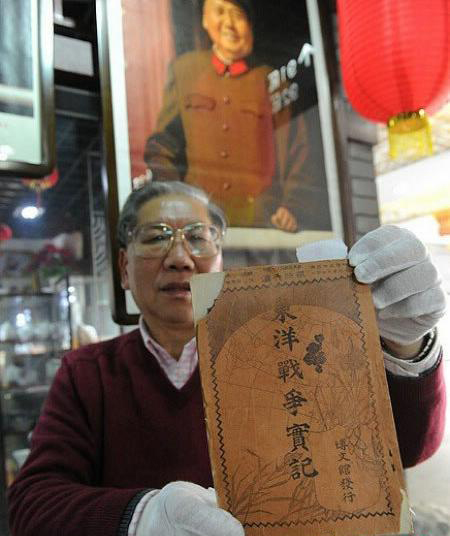 東洋戰爭實記
博文館發行